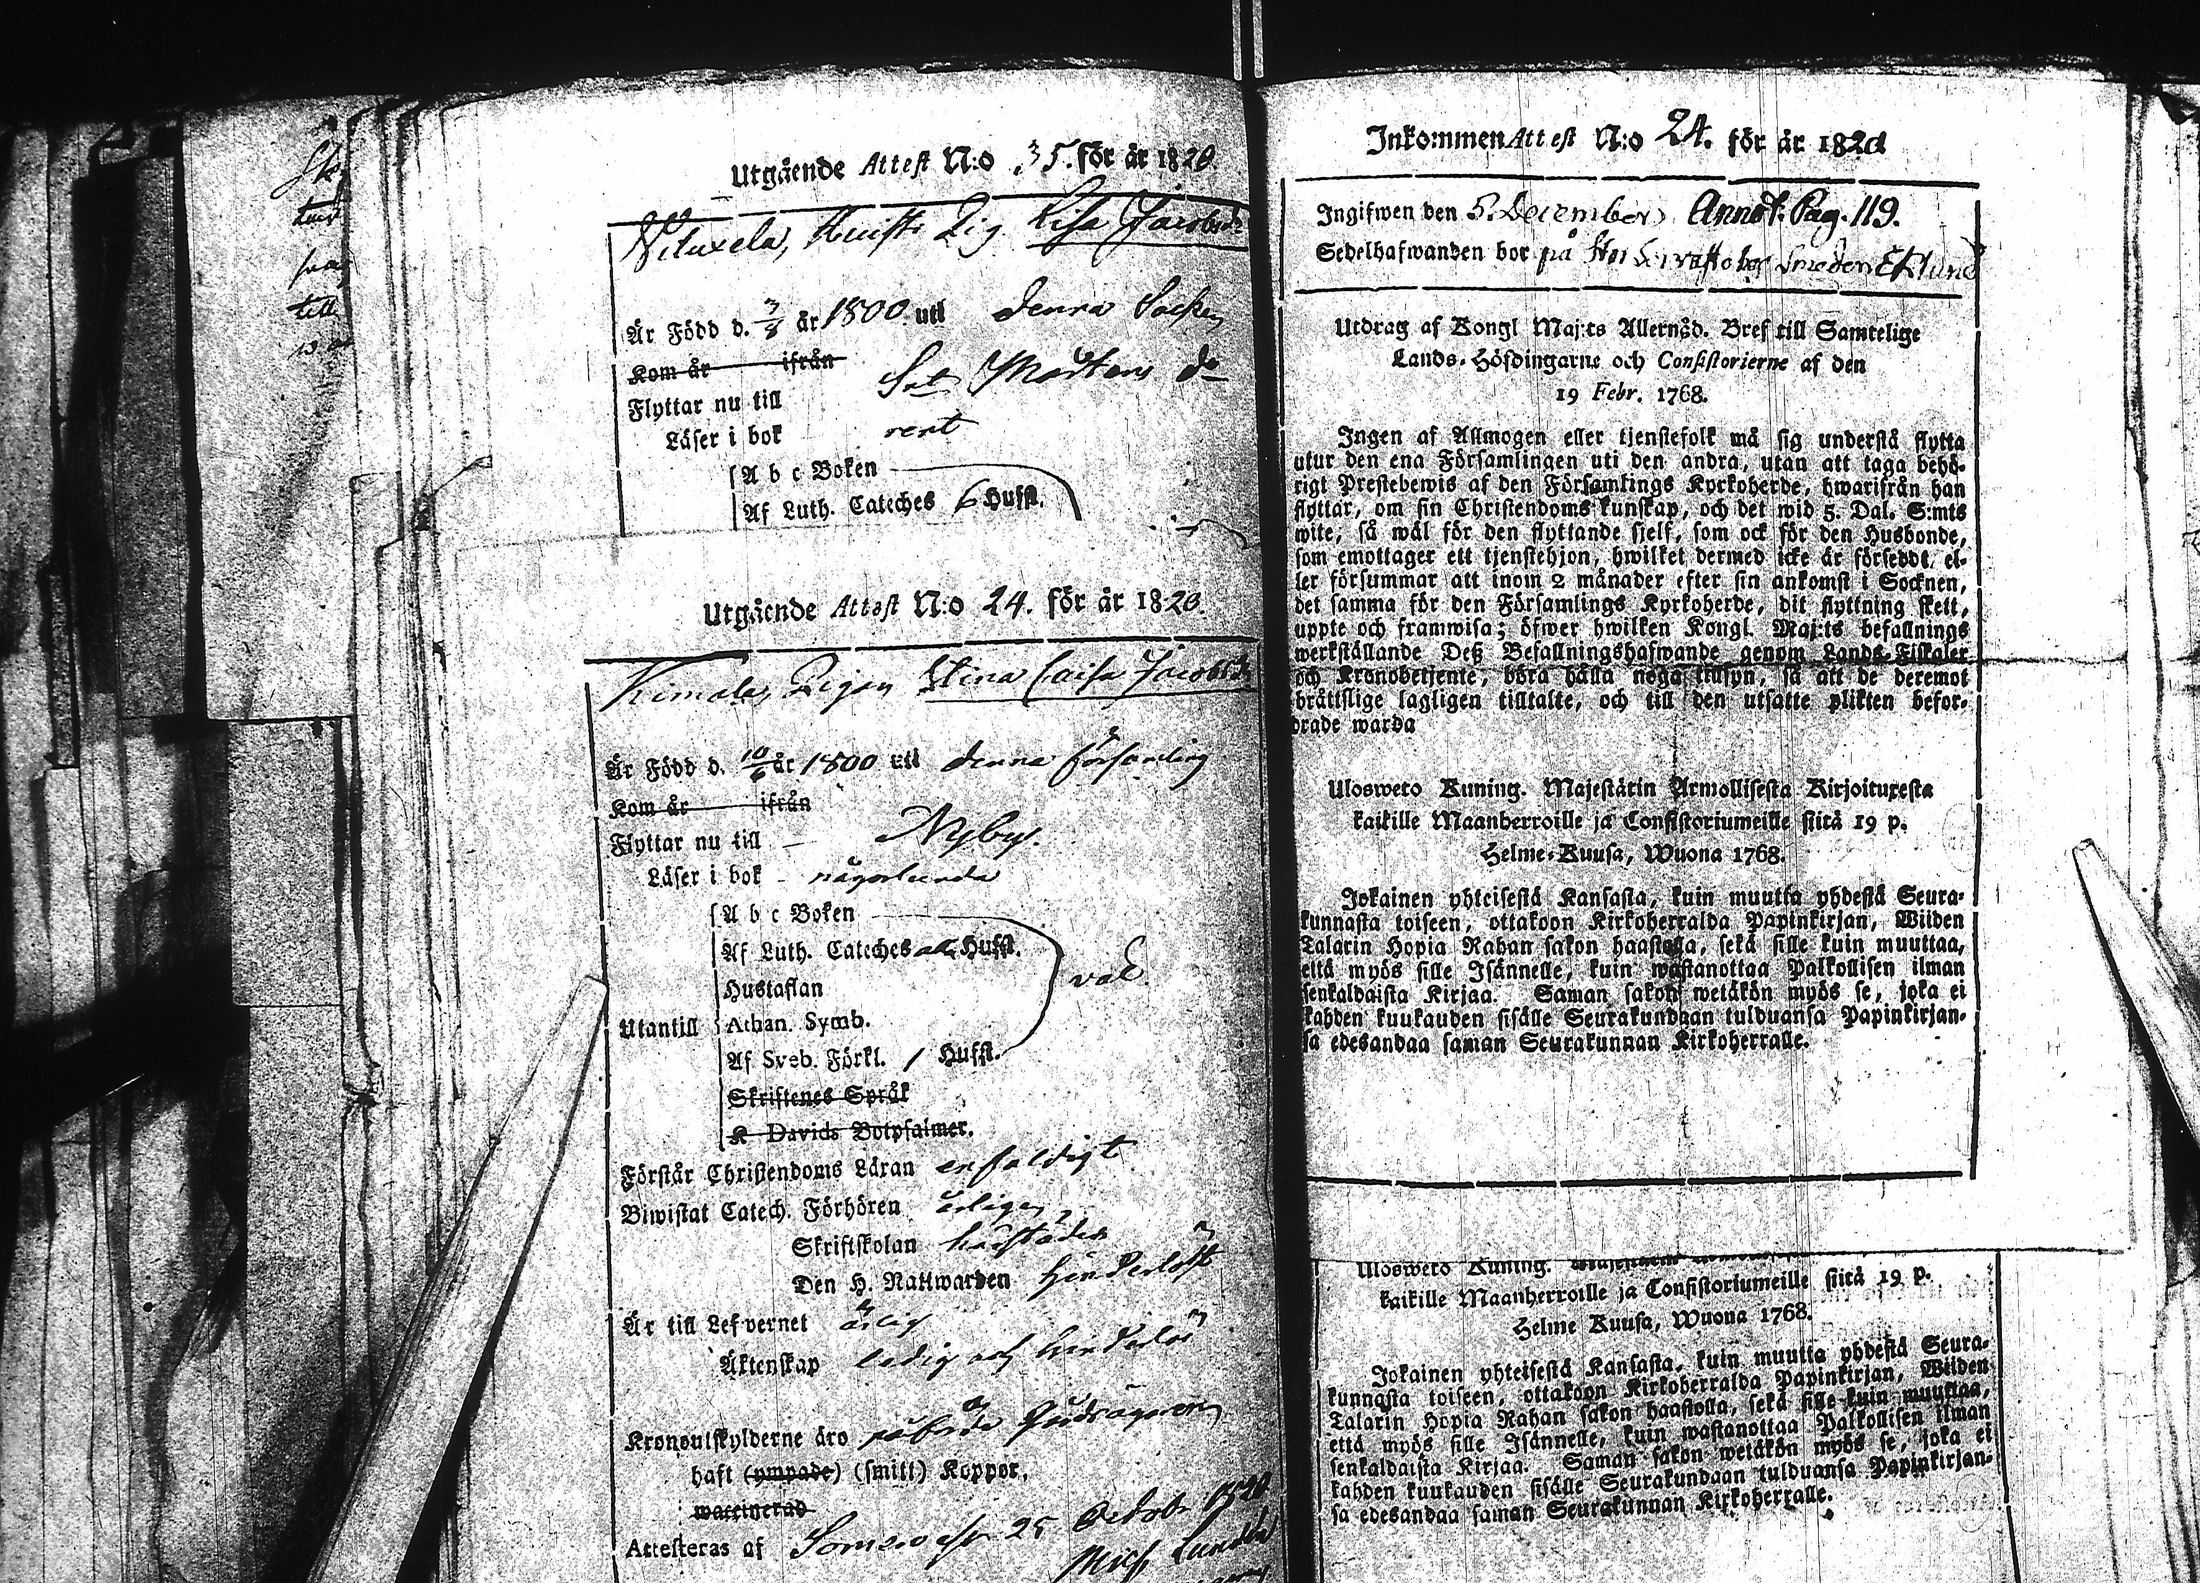 Utgående Attest N:o 35. för år 1820.
Lisa Jacobsdr
Är Född d. 3/8 år 1800. uti denna Socken
Kom år ifrån
Flyttar nu till Sct Mårtens
Läser i bok rent
A b c Boken
Af Luth. Cateches 6 Hufst.
Utgående Attest N:o 24. för år 1820.
Kimala, Pigan Stina Caisa Jacobsdr
Är Född d. 10/6 år 1800 uti denna församling
Kom år ifrån
Flyttar nu till Nyby.
Läser i bok någorlunda
A b c Boken
Af Luth. Cateches alla Hufst.
Hustaflan
väl.
Utantill Athan. Symb.
Af Sveb. Förkl. / Hufst.
Skriftenes Språk
K Davids Botpsalmer.
Förstår Christendoms Läran enfaldigt
Biwistat Catech. Förhören årligen
Skriftskolan
Den H. Nattwarden
Är till Lefvernet ärlig
Äktenskap ledig och hinderlös
Kronoutskylderne äro påförde Husbonden
haft (ympade) (smitt) Koppor,
waccinerad
Attesteras af Somero d. 25 Octob. 1820
Mich Lundén
Inkommen Attest N:o 24. för år 1820
Ingifwen den 5. December Annot. Pag. 119.
Sedelhafwanden bor på hos Smeden Eklund
Utdrag af Kongl Maj:ts Allernåd. Bref till Samtelige
Lands-Höfdingarne och Consistorierne af den
19 Febr. 1768.
Ingen af Allmogen eller tjenstefolk må sig understå flytta
utur den ena Församlingen uti den andra, utan att taga behö-
rigt Prestebewis af den Församlings Kyrkoherde, hwarifrån han
flyttar, om sin Christendoms kunskap, och det wid 5. Dal. S:mts
wite, så wäl för den flyttande sjelf, som ock för den Husbonde,
som emottager ett tjenstehjon, hwilket dermed icke är förseddt, el-
ler försummar att inom 2 månader efter sin ankomst i Socknen,
det samma för den Församlings Kyrkoherde, dit flyttning skett,
uppte och framwisa; öfwer hwilken Kongl. Maj:ts befallnings
werkställande Deß Befallningshafwande genom Lands-Fiskaler
och Kronobetjente, böra hålla noga tillsyn, så att de deremot
bråttslige lagligen tilltalte, och till den utsatte plikten befor-
drade warda
Ulosweto Kuning. Majestätin Armollisesta Kirjoituxesta
kaikille Maanherroille ja Consistoriumeille siitä 19 p.
Helme-Kuusa, Wuona 1768.
Jokainen yhteisestä Kansasta, kuin muutta yhdestä Seura-
kunnasta toiseen, ottakoon Kirkoherralda Papinkirjan, Wiiden
Talarin Hopia Rahan sakon haastolla, sekä sille kuin muuttaa,
että myös sille Isännelle, kuin wastanottaa Palkollisen ilman
senkaldaista Kirjaa. Saman sakon wetäkön myös se, joka ei
kahden kuukauden sisälle Seurakundaan tulduansa Papinkirjan-
sa edesandaa saman Seurakunnan Kirkoherralle.
Ulosweto Kuning.
kaikille Maanherroille ja Consistoriumeille siitä 19 p.
Helme Kuusa, Wuona 1768.
Jokainen yhteisestä Kansasta, kuin muutta yhdestä Seura-
kunnasta toiseen, ottakoon Kirkoherralda Papinkirjan, Wiiden
Talarin Hopia Rahan sakon haastolla, sekä sille kuin muuttaa,
että myös sille Isännelle, kuin wastanottaa Palkollisen ilman
senkaldaista Kirjaa. Saman sakon wetäkön myös se, joka ei
kahden kuukauden sisälle Seurakundaan tulduansa Papinkirjan-
sa edesandaa saman Seurakunnan Kirkoherralle.